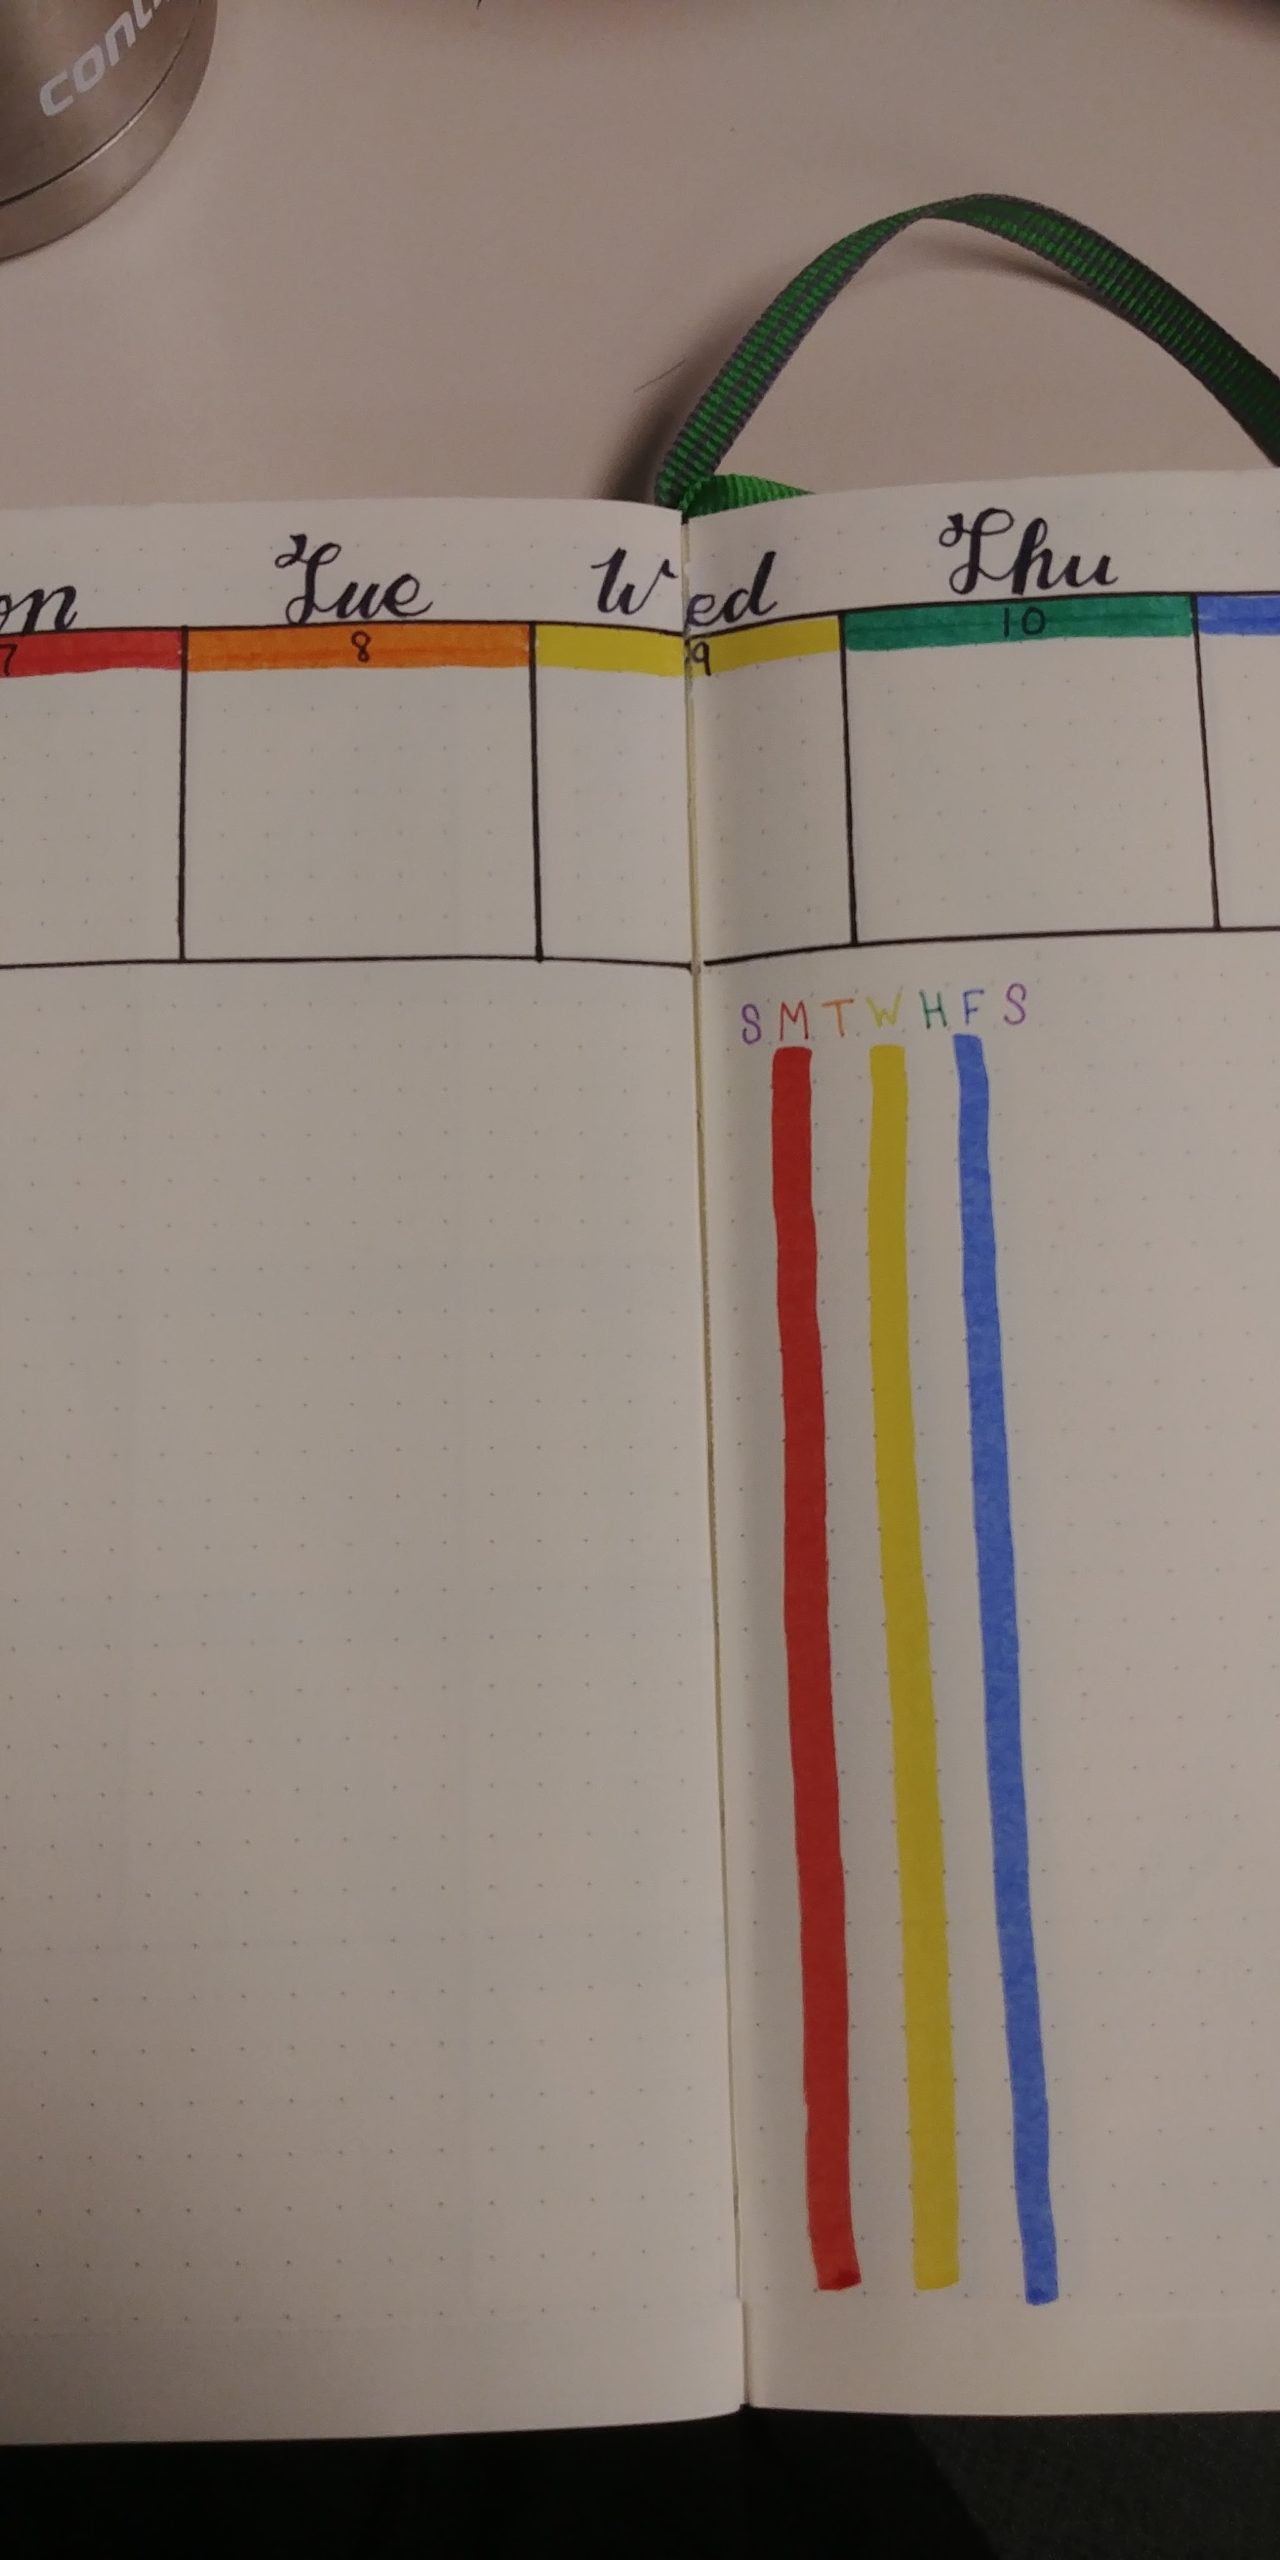 on Tue Wed Thu
7 8 9 10
S M T W H F S